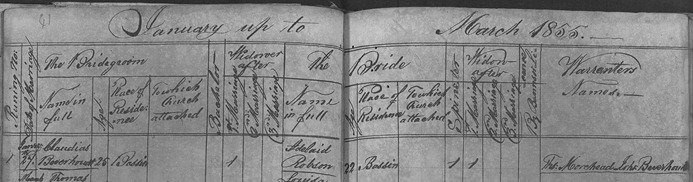 January up to March 1855.
Running No.
Date of Marriage
The Bridegroom
Name in full
Age
Place of Residence
To which Church attached
Bachelor
Widower after
1st Marriage
2nd Marriage
3rd Marriage
The Bride
Name in full
Age
Place of Residence
To which Church attached
Spinster
Widow after
1st Marriage
2nd Marriage
3rd Marriage
Warrenters Names.
1
24
Claudius
Beverhoudt
26
Bassin
1
Adelaid
Robson
22
Bassin
1
1
Morehead Johs. Beverhoudt
Thomas
Louisa